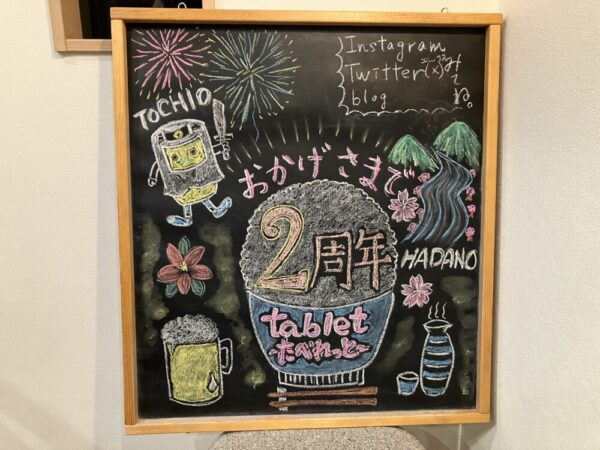 Instagram
Twitter(X)
blog
みてね。
TOCHIO
おかげさまで
2周年
HADANO
tablet
〜たべれっと〜